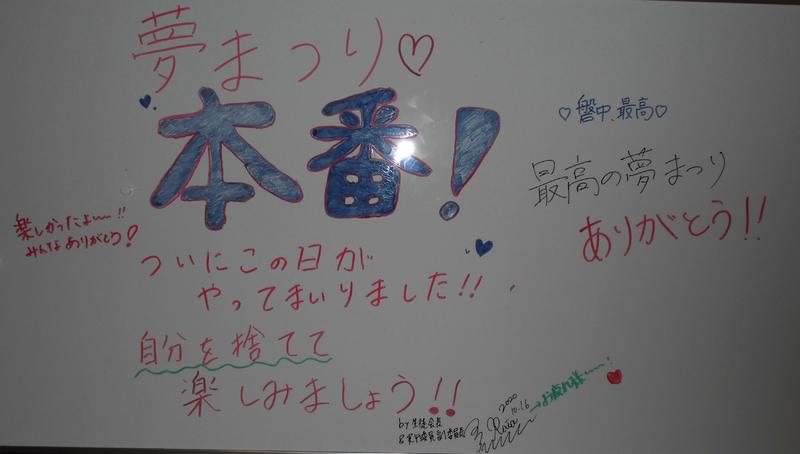 夢まつり♡
本番!
ついにこの日が
やってまいりました!!
自分を捨てて
楽しみましょう!!
by 生徒会長
&実行委員副委員長
2020
10.16
→お疲れ様
楽しかったよーー!!
みんなありがとう!
♡磐中、最高♡
最高の夢まつり
ありがとう!!